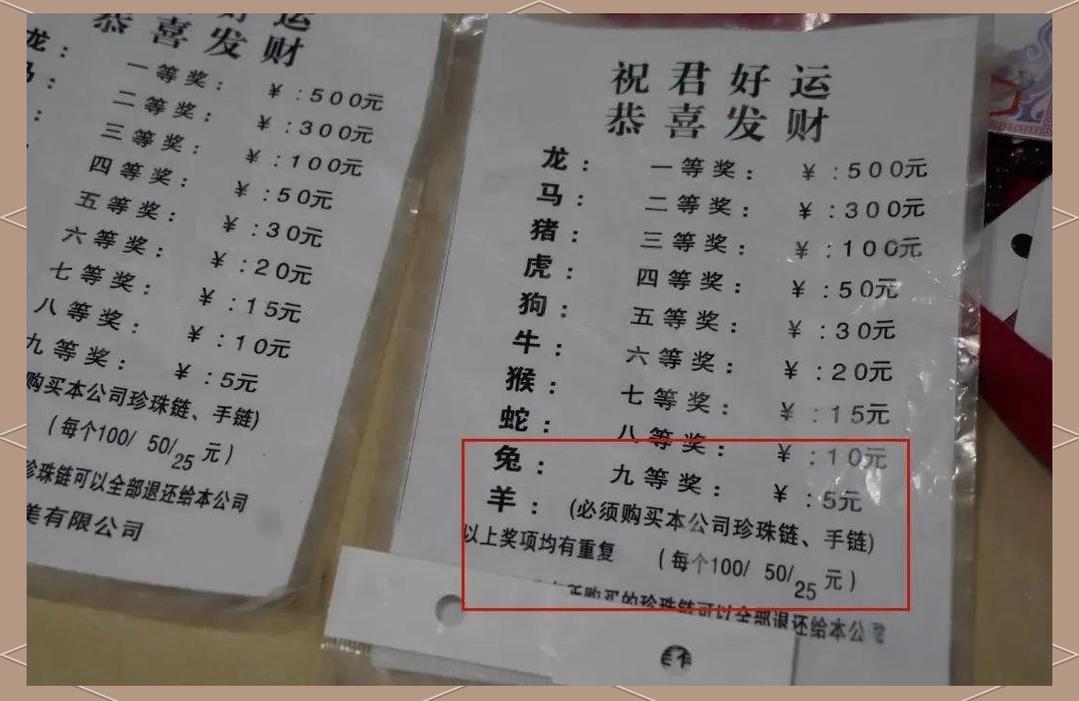 恭喜发财
龙：
一等奖： ¥：500元
二等奖： ¥：300元
三等奖： ¥：100元
四等奖： ¥：50元
五等奖： ¥：30元
六等奖： ¥：20元
七等奖： ¥：15元
八等奖： ¥：10元
九等奖： ¥：5元
购买本公司珍珠链、手链)
(每个100/ 50/25 元)
珍珠链可以全部退还给本公司
美有限公司
祝君好运
恭喜发财
龙： 一等奖： ¥：500元
马： 二等奖： ¥：300元
猪： 三等奖： ¥：100元
虎： 四等奖： ¥：50元
狗： 五等奖： ¥：30元
牛： 六等奖： ¥：20元
猴： 七等奖： ¥：15元
蛇： 八等奖： ¥：10元
兔： 九等奖： ¥：5元
羊： (必须购买本公司珍珠链、手链)
以上奖项均有重复 (每个100/ 50/25 元)
购买的珍珠链可以全部退还给本公司